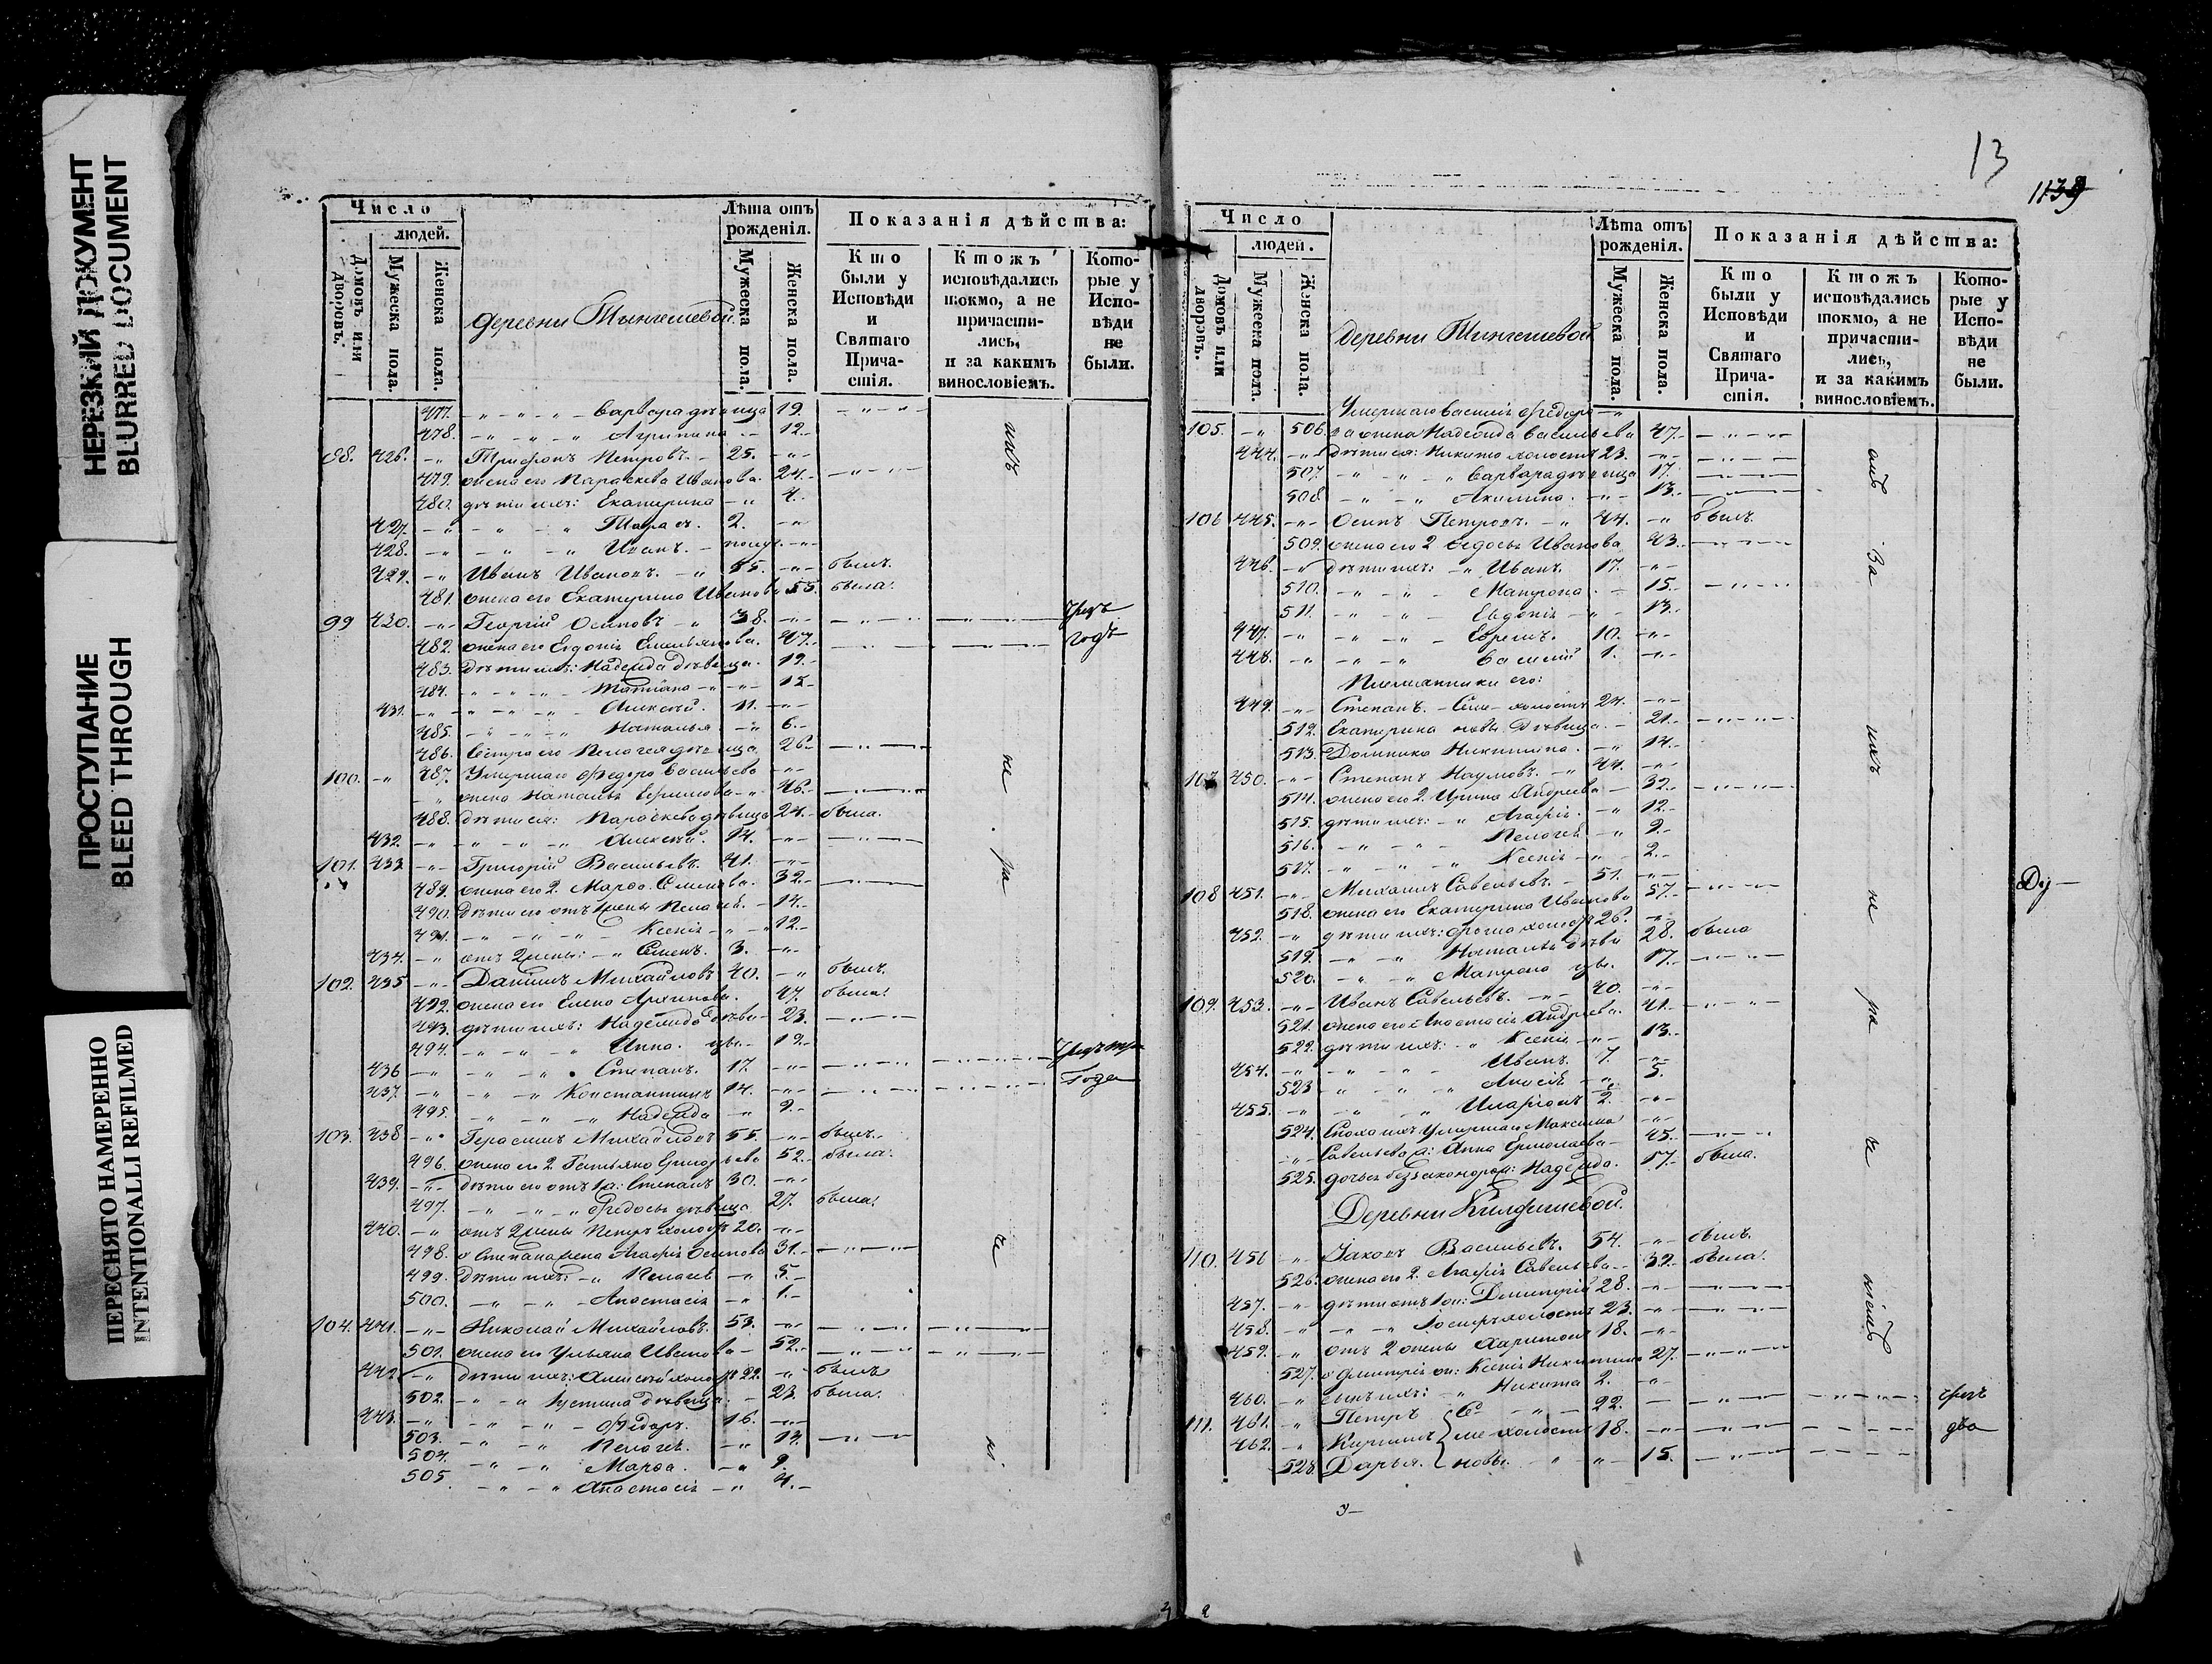 НЕРЕЗКИЙ ДОКУМЕНТ
BLURRED DOCUMENT
ПРОСТУПАНИЕ
BLEED THROUGH
ПЕРЕСНЯТО НАМЕРЕННО
INTENTIONALLI REFILMED
Число
людей.
Домовъ или дворовъ.
Мужеска пола.
Женска пола.
деревни
Лѣта отъ рожденія.
Мужеска пола.
Женска пола.
Показанія дѣйства:
Кто были у Исповѣди и Святаго Прича-стія.
Ктожъ исповѣдались токмо, а не причасти-лись, и за какимъ винословіемъ.
Кото-рые у Испо-вѣди не были.
477. Варвара дѣвица 19.
478. Агрипина 12.
98. 426. Трифонъ Петровъ 25.
479. жена его Параскева Иванова 24.
480. дѣти ихъ: Екатерина 4.
427. Тарасъ. 2.
428. Иванъ.
429. Иванъ Ивановъ. 55. былъ.
481. жена его Екатерина Иванова 55. была.
99 430. Георгій Осиповъ 38. чрезъ
482. жена его Евдокія Емельянова. 47. годъ
483. дѣти ихъ: Надежда дѣвица. 19.
484. Татіана 15.
431. Алексѣй. 11.
485. Наталья 6.
486. Сестра его Пелагея дѣвица 26.
100. 487. Умершаго Федора Васильева
жена Наталья Ефимова 46.
488. дѣти ея: Параскева дѣвица 24. была.
432. Алексѣй. 14.
101. 433 Григорій Васильевъ. 41.
489. жена его 2. Марѳа Семенова. 32.
490. дѣти его отъ 1 жены Пелагея. 14.
491. Ксенія 12.
434. отъ 2 жены: Семенъ. 3.
102. 435 Даніилъ Михайловъ 40. былъ.
492. жена его Елена Архипова. 47. была.
493. дѣти ихъ: Надежда дѣви 23.
494. Анна. цы 19.
436 Степанъ. 17. чрезъ три
437. Константинъ 14. Года
495. Надежда 9.
103. 438 Герасимъ Михайловъ 55. былъ.
496. жена его 2 Татьяна Григорьева 52. была.
439. дѣти его отъ 1 ж: Степанъ 30.
497. Федосья дѣвица 27. была.
440. отъ 2 жены Петръ холостъ 20.
498. у Степана жена Агафія Осипова 31.
499. дѣти ихъ: Пелагея 5.
500. Анастасія 1.
104. 441. Николай Михайловъ. 53.
501. жена его Ульяна Иванова 52.
442. дѣти ихъ: Алексѣй холостъ 22. былъ
502. Устина дѣвица 23. была.
443. Федоръ. 16.
503. Пелагея. 13.
504. Марѳа. 9.
505. Анастасія 4.
13
1139
Число
людей.
Домовъ или дворовъ.
Мужеска пола.
Женска пола.
деревни
Лѣта отъ рожденія.
Мужеска пола.
Женска пола.
Показанія дѣйства:
Кто были у Исповѣди и Святаго Прича-стія.
Ктожъ исповѣдались токмо, а не причасти-лись, и за какимъ винословіемъ.
Кото-рые у Испо-вѣди не были.
Умершаго Василія Федоро
105. 506. ва жена Надежда Васильева 47.
444. дѣти ея: Никита холостъ 23.
507. Варвара дѣвица 17.
508. Акилина. 13.
106 445. Осипъ Петровъ. 44. былъ.
509. жена его 2 Федосья Иванова 43.
446. дѣти ихъ: Иванъ. 17.
510. Матрона 15.
511. Евдокія 13.
447. Ефремъ. 10.
448. Василій 1.
Племянники его:
449. Степанъ. Семе холостъ 24.
512. Екатерина новы дѣвица. 21.
513. Домника Никитина. 14.
107 450. Степанъ Наумовъ. 44.
514. жена его 2. Ирина Андреева 32.
515. дѣти ихъ: Агафія. 12.
516. Пелагея 9.
517. Ксенія 2.
108 451. Михаилъ Савельевъ. 51.
518. жена его Екатерина Иванова 57.
452. дѣти ихъ: Фома холостъ 26.
519. Наталья дѣви 28. была
520. Матрона цы. 17.
109. 453. Иванъ Савельевъ. 40.
521. жена его Анастасія Андреева. 41.
522. дѣти ихъ: Ксенія 13.
454. Иванъ. 7.
523 5.
455. Иларіонъ 2.
524. Сноха ихъ Умершаго Максима
Савельева ж: Анна Ермолаева 45.
525. дочь ея Надежда. 17. была.
Ду—
Деревни
110. 456 Іаковъ Васильевъ. 54. былъ.
526. жена его 2. Агафія Савельева 39. была.
457. дѣти отъ 1 ж: Димитрій 28.
458. холостъ 23.
459. отъ 2 жены Харитонъ 18.
527. у Дмитрія ж: Ксенія Никитина 27.
460. сынъ ихъ: Никита 2.
111. 461. Петръ Се 22. чрезъ
462. Кириллъ ме холосты 18. два
528. Дарья. новы. 15.